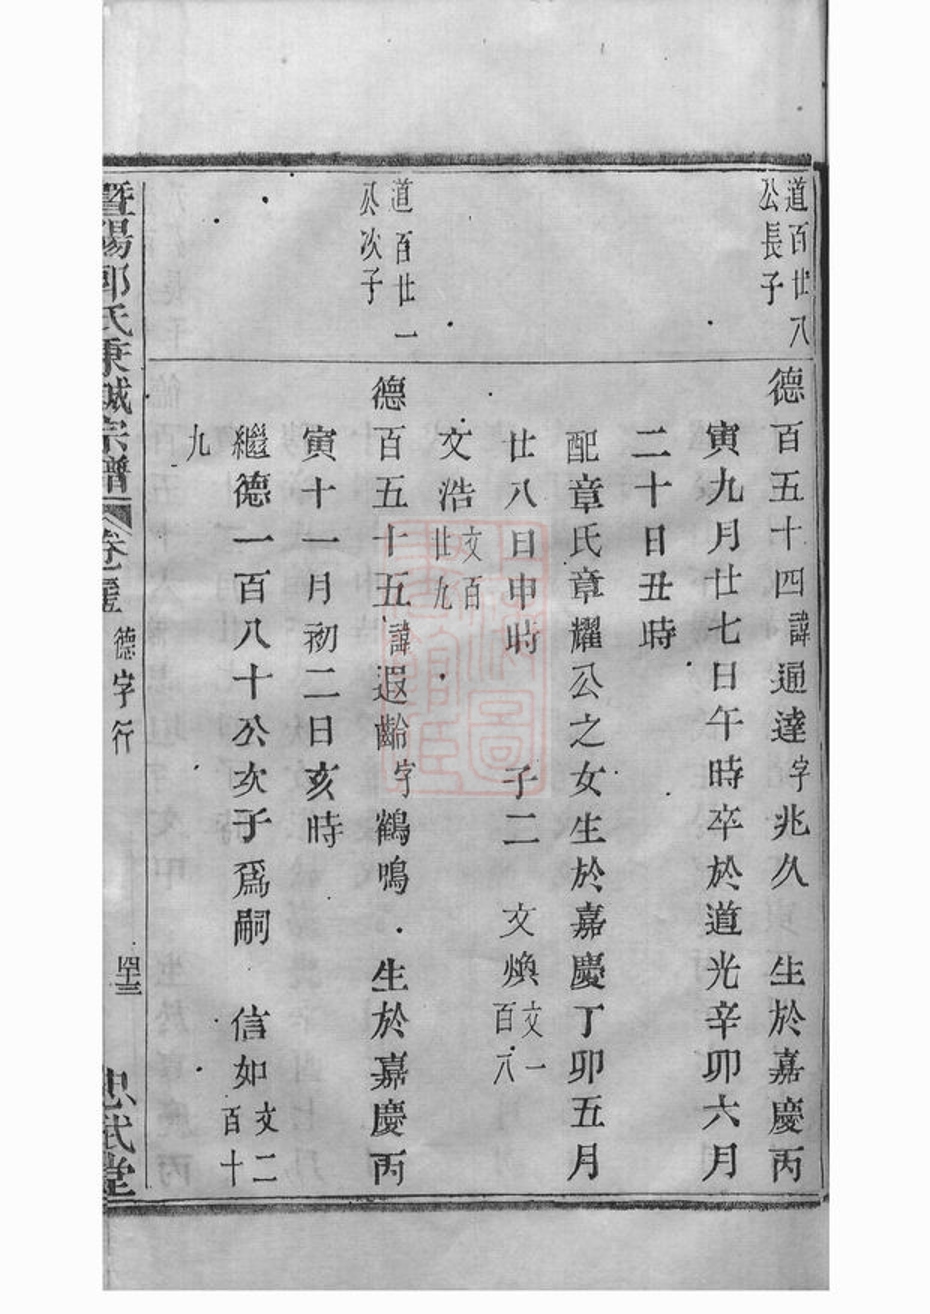 道百廿八
公長子
德百五十四諱通達字兆久 生於嘉慶丙
寅九月廿七日午時卒於道光辛卯六月
二十日丑時
配章氏章耀公之女生於嘉慶丁卯五月
廿八日申時 子二 文煥文一百八
文浩文百廿九
道百廿一
公次子
德百五十五諱遐齡字鶴鳴 生於嘉慶丙
寅十一月初二日亥時
繼德一百八十公次子爲嗣 信如文二百十
九
暨陽郭氏秉誠宗譜 卷 德字行 四十三 忠武堂